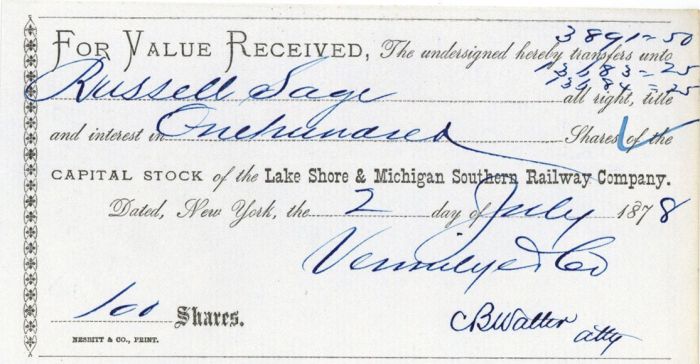 3891=50
FOR VALUE RECEIVED, The undersigned hereby transfers unto
13383=25
13384=25
Russell Sage all right, title
and interest in Onehundred Shares of the
CAPITAL STOCK of the Lake Shore & Michigan Southern Railway Company.
Dated, New York, the 2 day of July 1878
Vermilye & Co
100 Shares.
CBWalter atty
NESBITT & CO., PRINT.